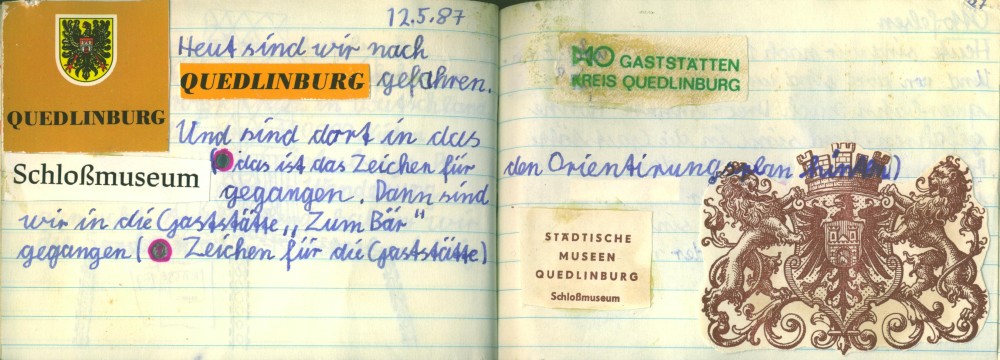 12.5.87
Heut sind wir nach
QUEDLINBURG gefahren.
QUEDLINBURG
Und sind dort in das
Schloßmuseum
( das ist das Zeichen für
den Orientirungsplan hinten)
gegangen. Dann sind
wir in die Gaststätte „Zum Bär"
gegangen ( Zeichen für die Gaststätte)
27
HO GASTSTÄTTEN
KREIS QUEDLINBURG
STÄDTISCHE
MUSEEN
QUEDLINBURG
Schloßmuseum